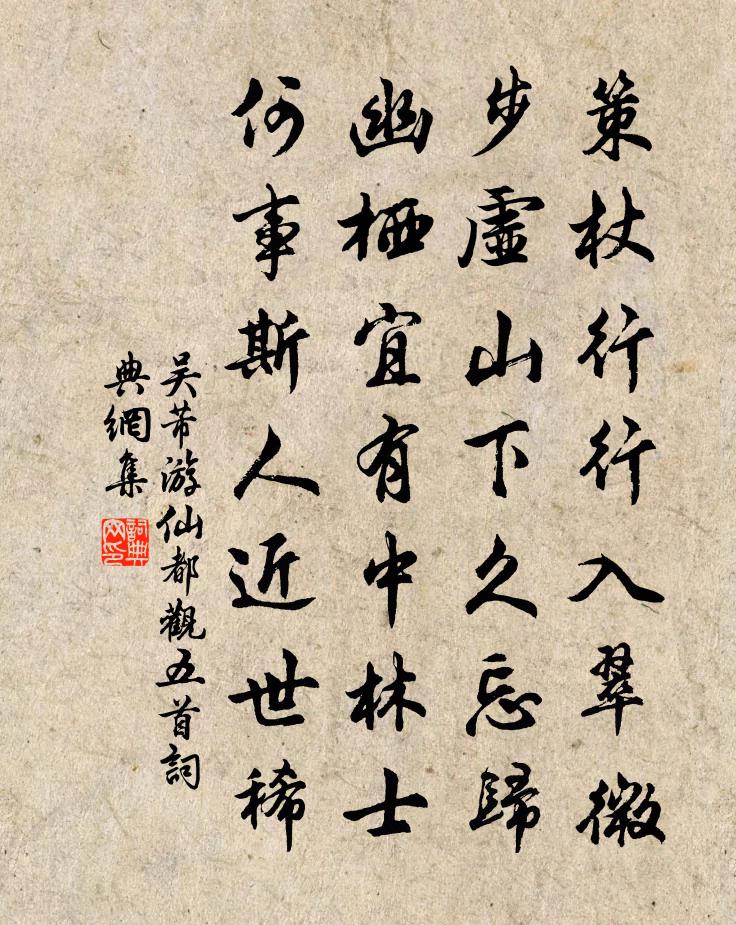 策杖行行入翠微
步虛山下久忘歸
幽栖宜有中林士
何事斯人近世稀
吴芾游仙都觀五首詞
典網集
詞典
网印